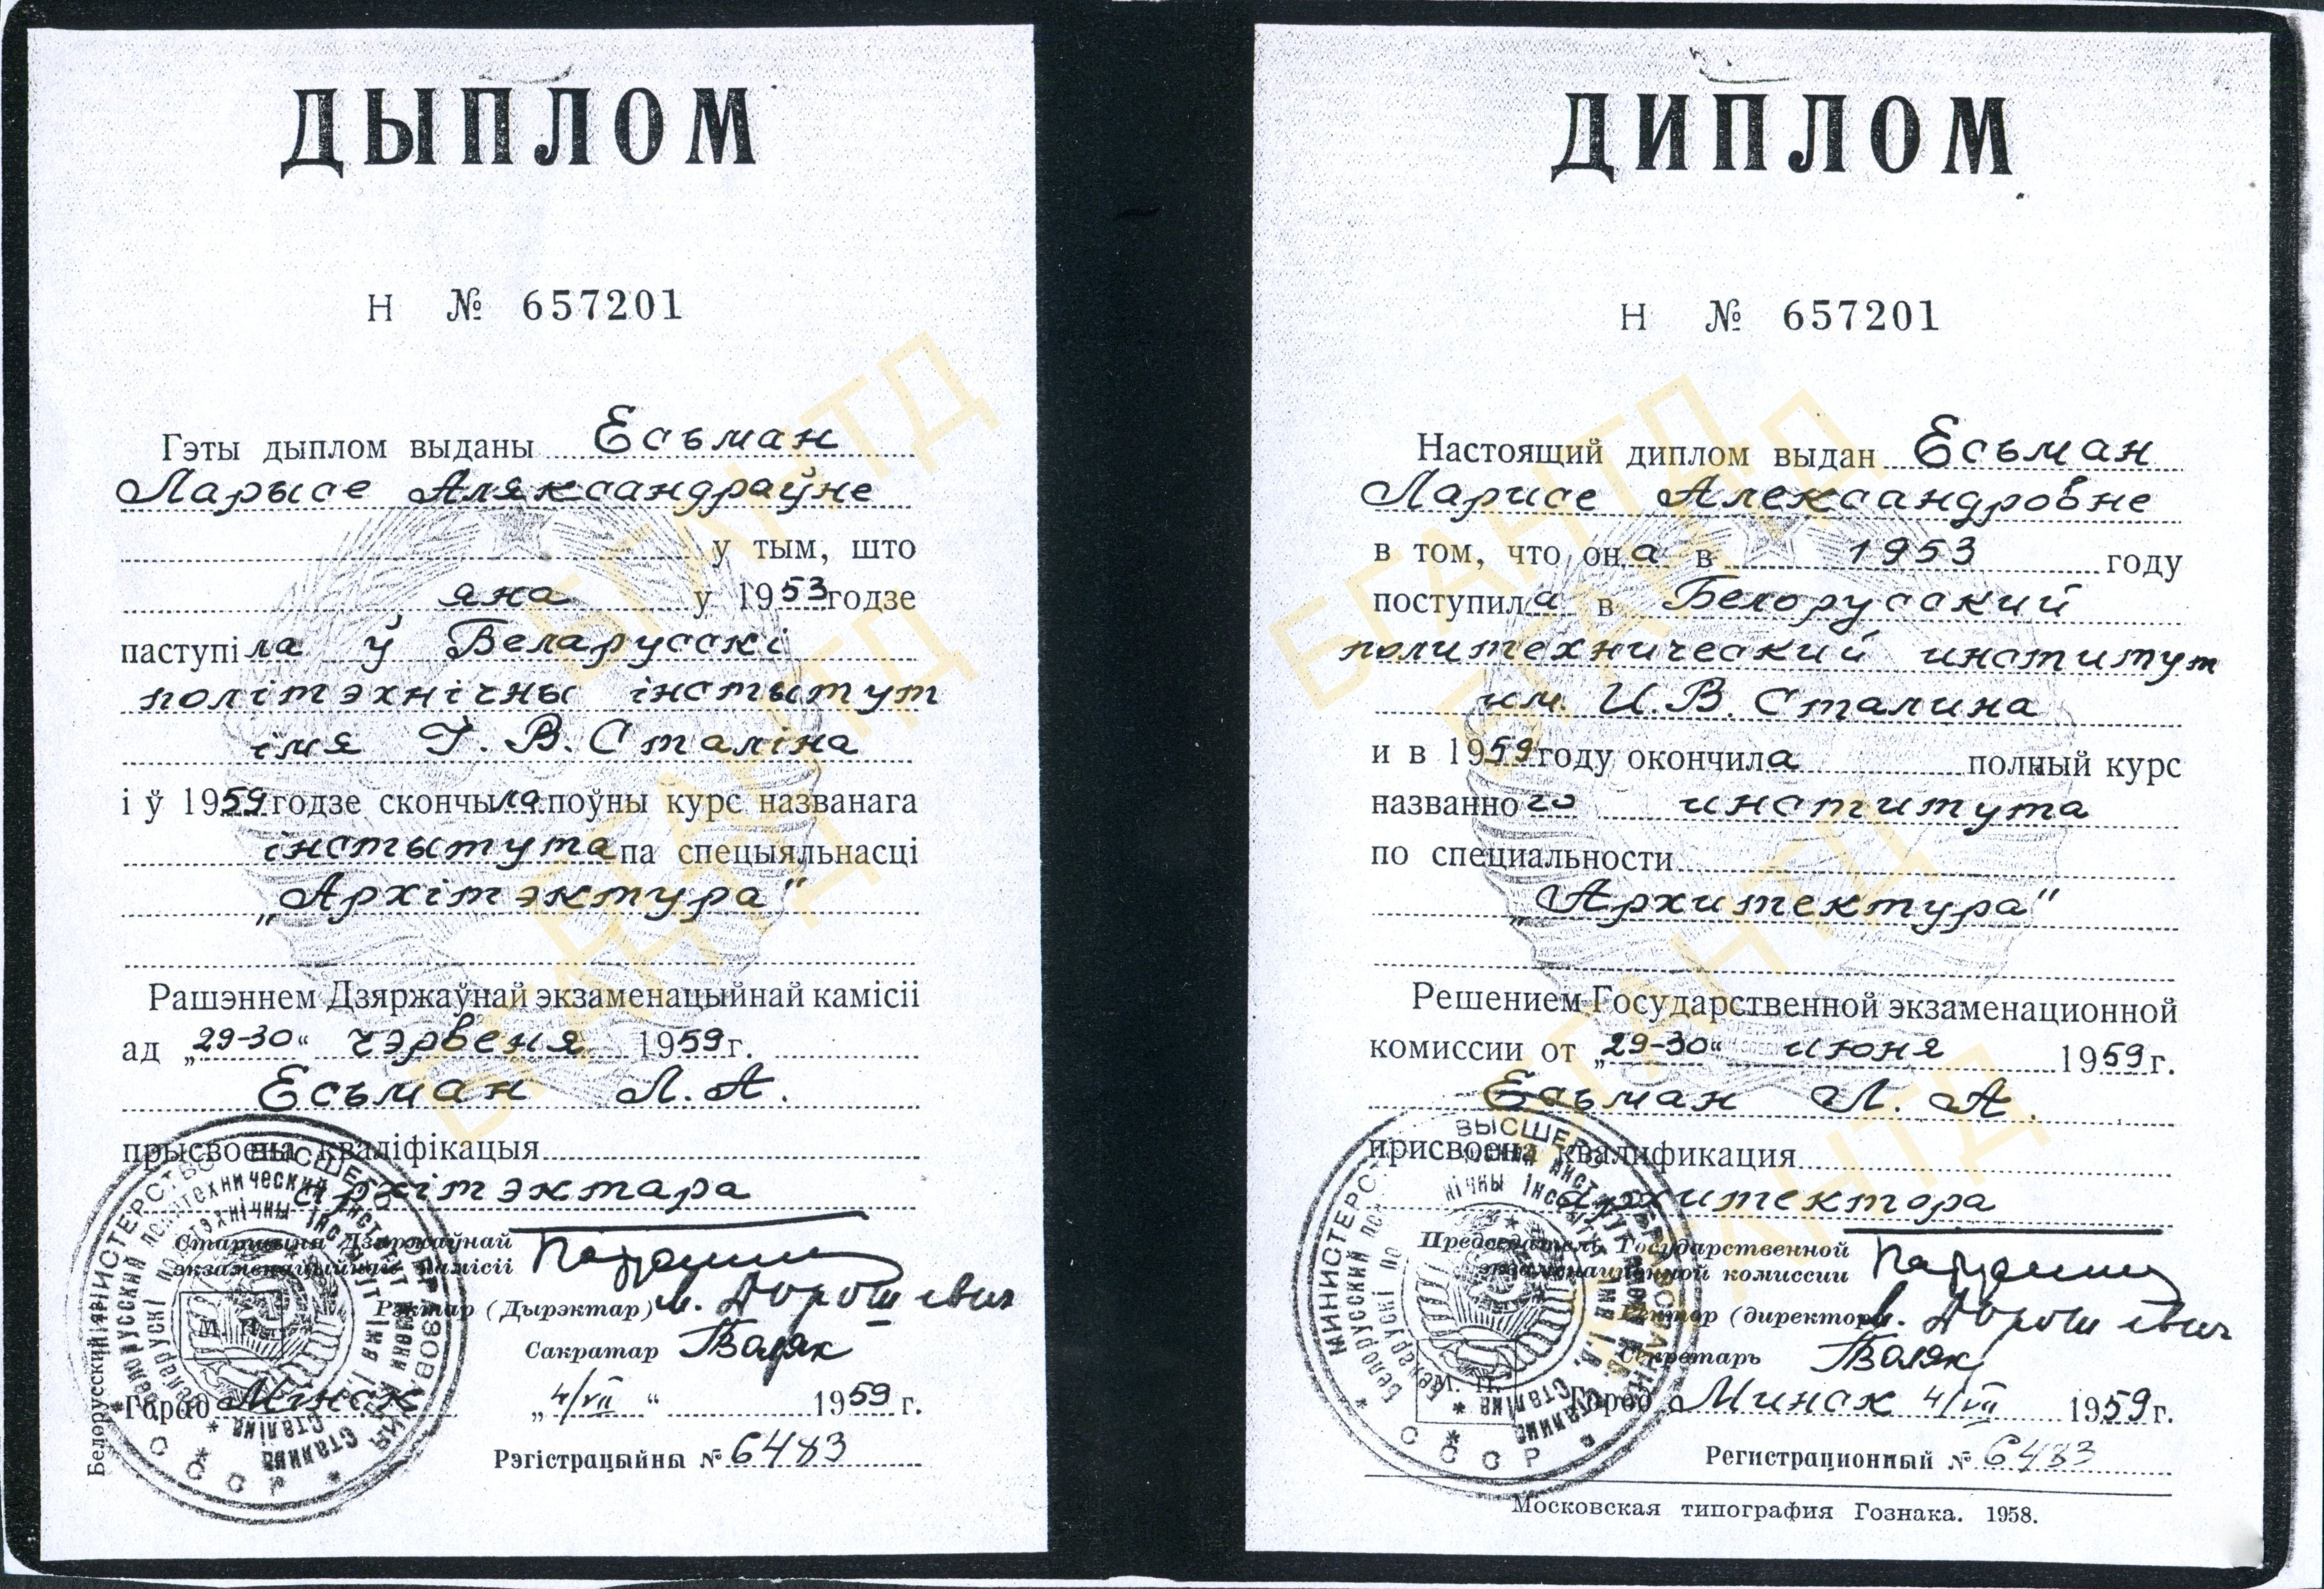 ДЫПЛОМ
Н № 657201
Гэты дыплом выданы Есьман
Ларысе Аляксандраўне
у тым, што
яна у 1953 годзе
паступіла ў Беларусскі
політэхнічны інстытут
імя І. В. Сталіна
і ў 1959 годзе скончыла поўны курс названага
інстытута па спецыяльнасці
„Архітэктура"
Рашэннем Дзяржаўнай экзаменацыйнай камісіі
ад „29-30“ чэрвеня 1959 г.
Есьман Л. А.
прысвоена кваліфікацыя
архітэктара
Старшыня Дзяржаўнай
экзаменацыйнай камісіі
Рэктар (Дырэктар) М. Дорошевич
Сакратар Валяк
Горад Мінск „4/VII“ 1959 г.
Рэгістрацыйны № 6483
ДИПЛОМ
Н № 657201
Настоящий диплом выдан Есьман
Ларисе Александровне
в том, что она в 1953 году
поступила в Белорусский
политехнический институт
им. И. В. Сталина
и в 1959 году окончила полный курс
названного института
по специальности
„Архитектура"
Решением Государственной экзаменационной
комиссии от „29-30“ июня 1959 г.
Есьман Л. А.
присвоена квалификация
архитектора
Председатель Государственной
экзаменационной комиссии
Ректор (директор) М. Дорошевич
Секретарь Валяк
М. П.
Город Минск 4/VII 1959 г.
Регистрационный № 6483
Московская типография Гознака. 1958.
БГАНТД